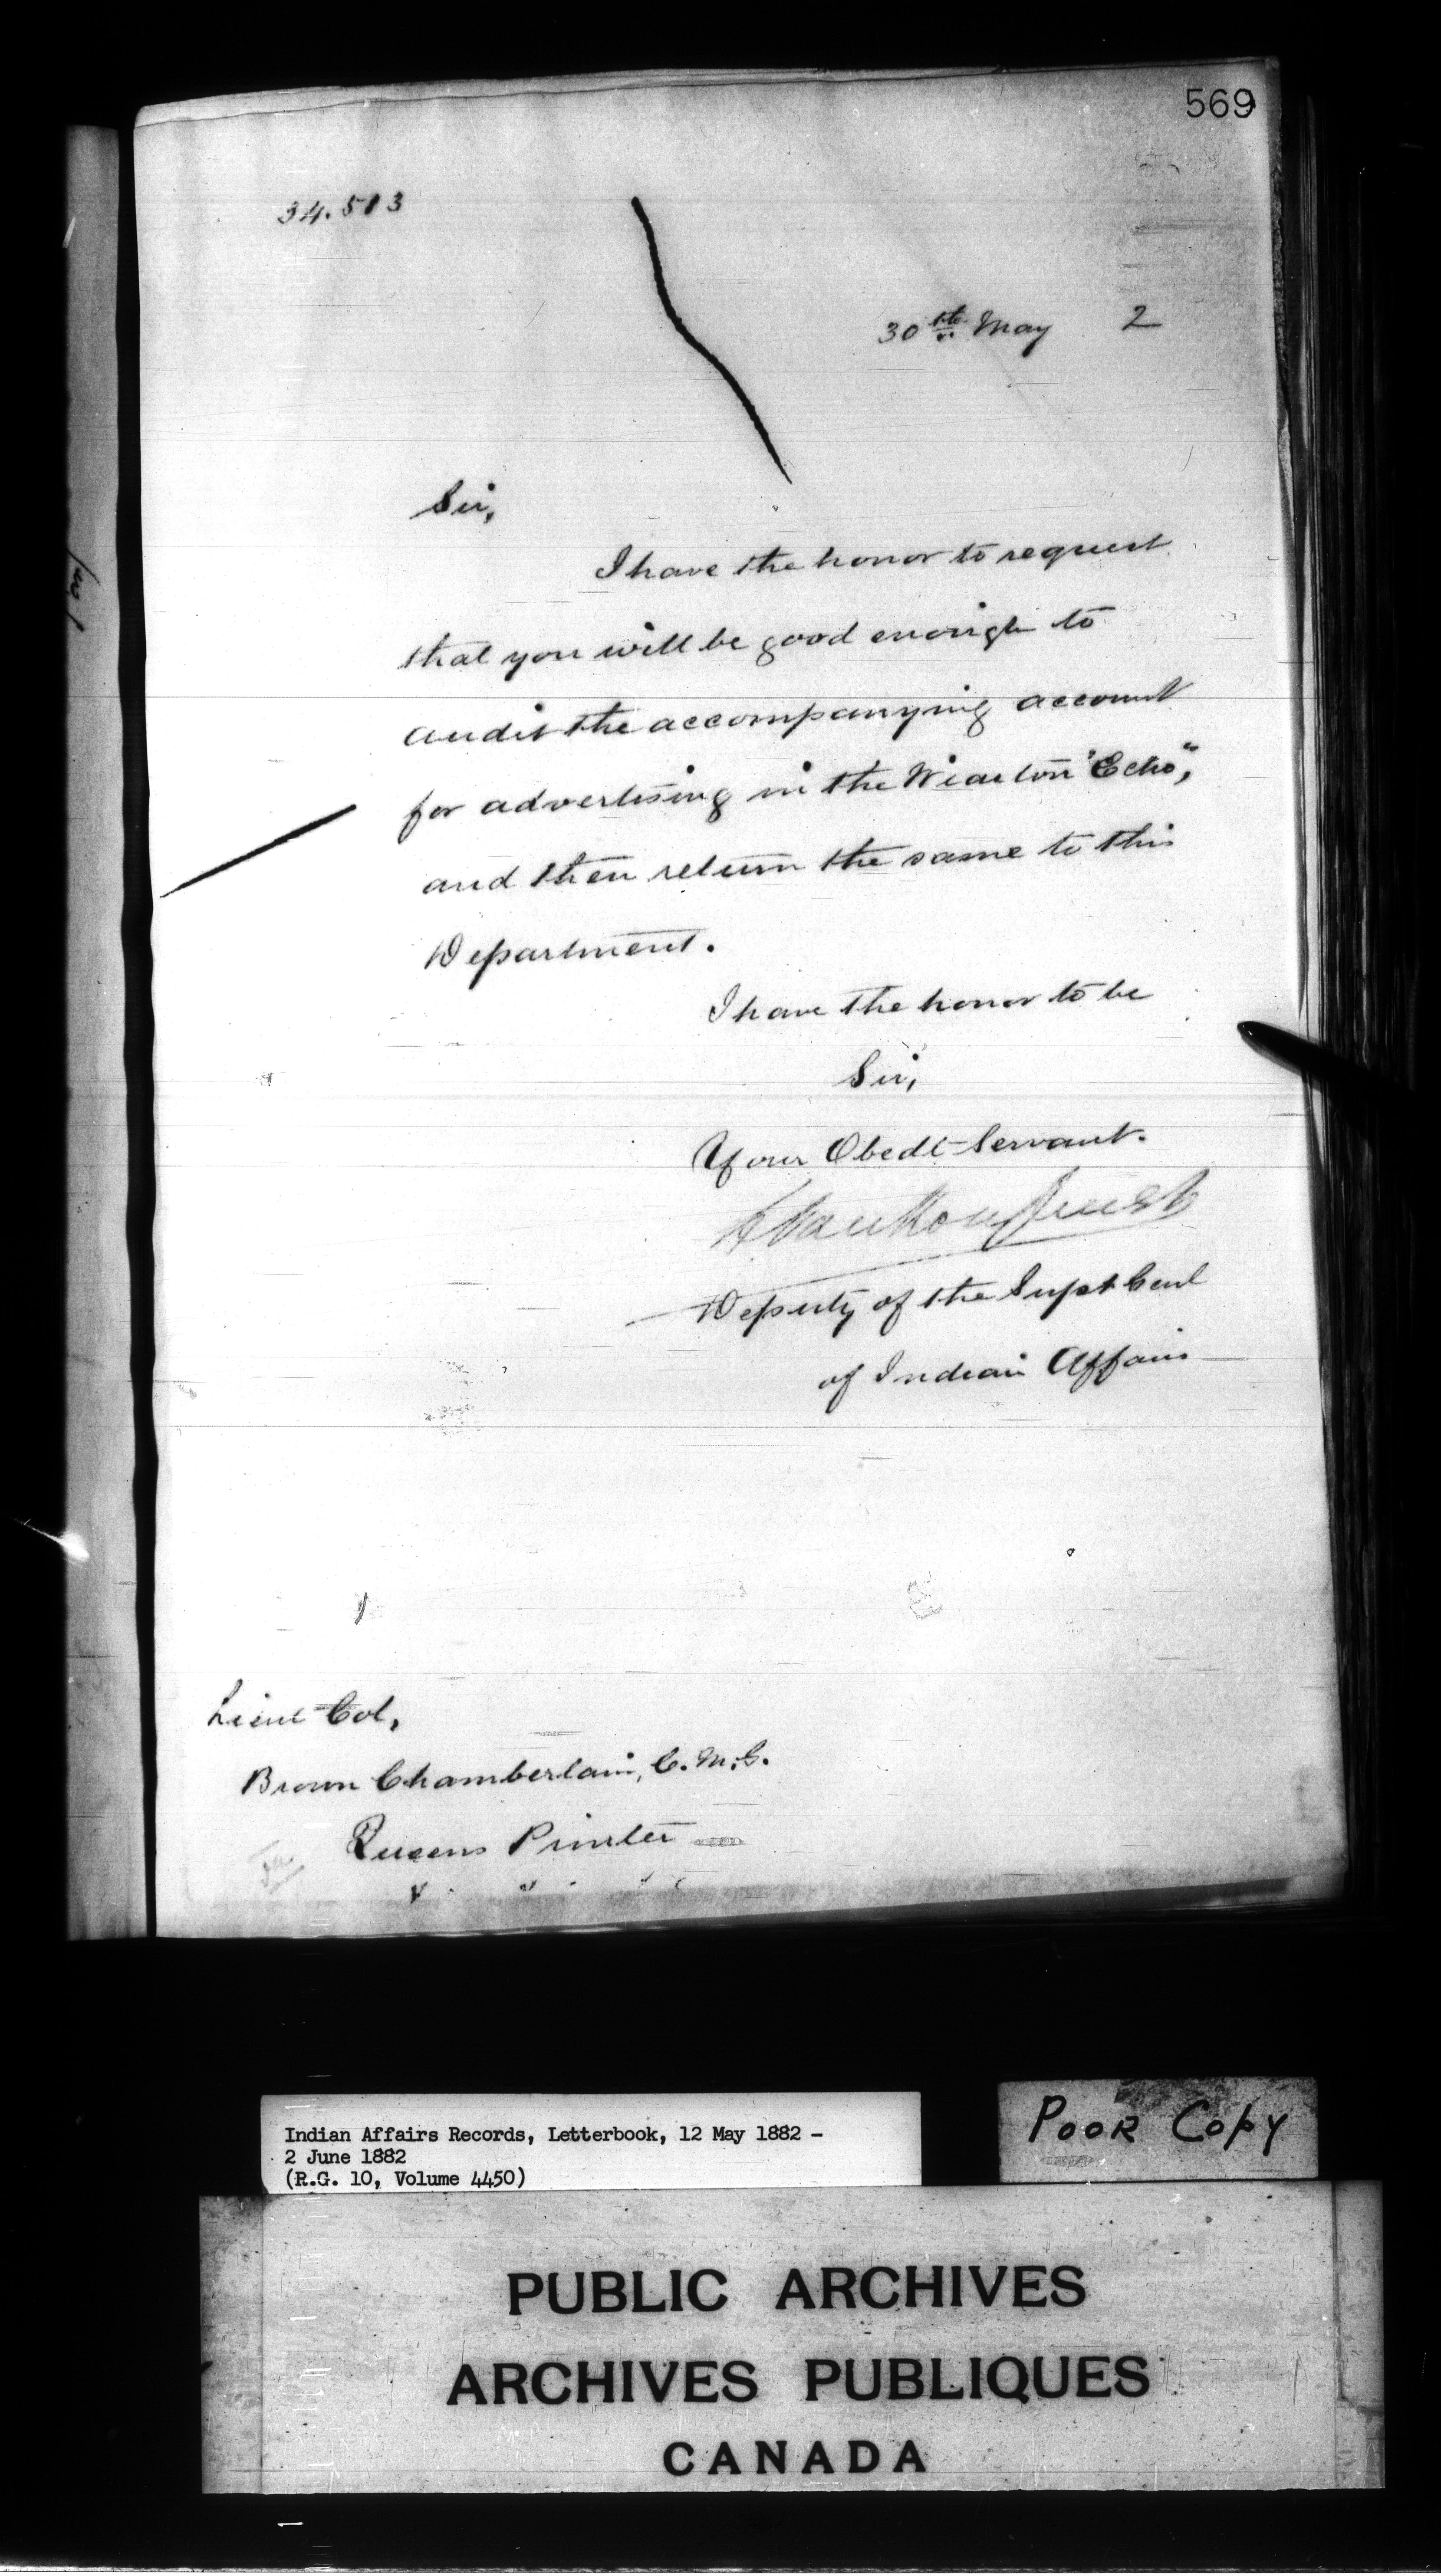 569
34.513
30th May 2
Sir,
I have the honor to request
that you will be good enough to
audit the accompanying account
for advertising in the Wiarton "Echo",
and then return the same to this
Department.
I have the honor to be
Sir,
Your Obedt Servant.
L Vankoughnet
Deputy of the Supt Genl
of Indian Affairs
Lieut Col,
Brown Chamberlain, C.M.G.
Queens Printer
Indian Affairs Records, Letterbook, 12 May 1882 -
2 June 1882
(R.G. 10, Volume 4450)
POOR COPY
PUBLIC ARCHIVES
ARCHIVES PUBLIQUES
CANADA